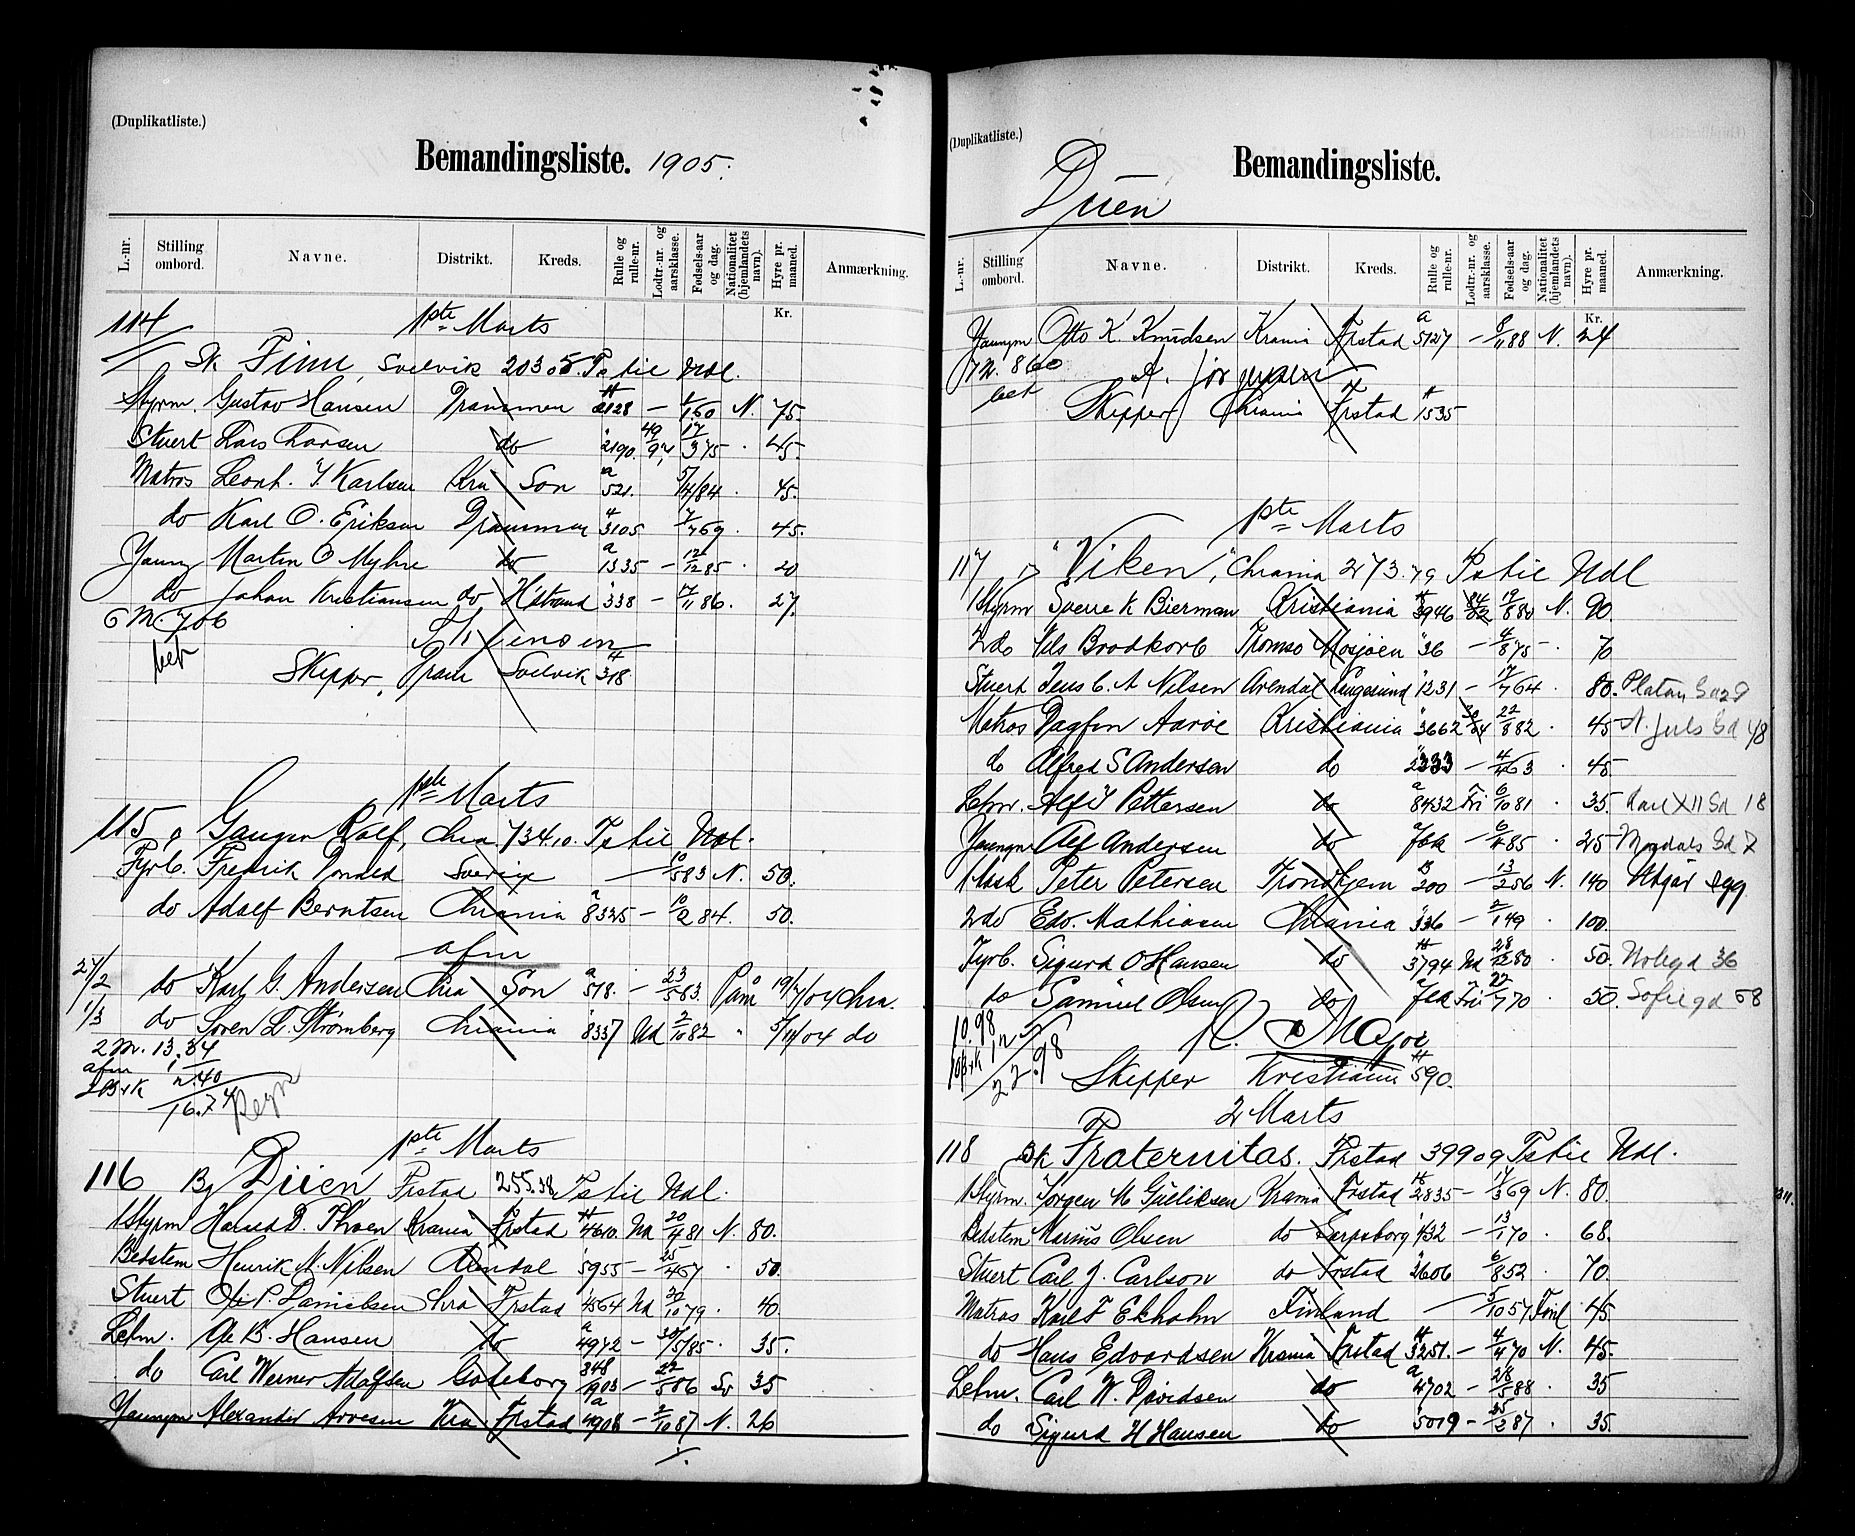 (Duplikatliste.)
Bemandingsliste. 1905.
L.-nr. Stilling ombord. Navne. Distrikt. Kreds. Rulle og rulle-nr. Lodtr.-nr. og aarsklasse. Fødsels-aar og dag. Nationalitet (hjemlandets navn). Hyre pr. maaned. Anmærkning.
Kr.
114 1ste Marts
Sk Finn, Svelvik 203.05 Ts til Udl.
Styrm. Gustav Hansen Drammen 2128 — 60 N. 75.
Stuert Lars Larsen do 2190 49/97 17/3 75 45.
Matros Leonh. Y. Karlsen Kra Son a 521. 5/4/84 45.
do Karl O. Eriksen Drammen 3105 1/7 69 45.
Jaungm Martin O Myhre do a 1335 — 12/12 85 20
do Johan Kristiansen do 338 — 17/11 86. 27.
6 M. 706
bet
Skipper, Dram Svelvik 318
1ste Marts
115 Ganger Rolf, Chra 734.10. Ts til Udl.
Fyrb. Fredrik Sverige — 10/5 83 N. 50.
do Adolf Berntsen Chrania a 8325 — 10/2 84. 50.
afm
27/2 do Karl G. Andersen Chra Son a 518. — 23/5 63. Paam 19/7/04 Chra.
1/3 do Soren L. Strømberg Chrania 8337 Ud 2/10 82 " 5/11/04 do
2 M. 13.34
afm 1
2B+K 2.40
16.74
1ste Marts
116 Bg Düen Frstad 255.38 Ts til Udl.
1Styrm Harald D. Thoen Krania Frstad 4610. Ud 20/4 81 N. 80.
Bedstem Henrik N. Nilsen Arendal 5955 — 25/4 57 50.
Stuert Ole P. Danielsen Kra Frstad 4564 Ud 20/10 79. 40.
Letm. Ole B. Hansen do a 4972 — 30/5/85 35.
do Carl Werner Adolfsen Goteborg 348/1903 — 22/5 86 Sv 35
Jaungm Alexander Arvesen Kra Frstad a 4908 — 2/10 87 N. 26
(Duplikatliste.)
Bemandingsliste.
Düen
L.-nr. Stilling ombord. Navne. Distrikt. Kreds. Rulle og rulle-nr. Lodtr.-nr. og aarsklasse. Fødsels-aar og dag. Nationalitet (hjemlandets navn). Hyre pr. maaned. Anmærkning.
Kr.
Jaungm Otto K. Knudsen Krania Frstad a 5127 — 8/11 88 N. 24
7 M. 860 A. Jörgensen
bet Skipper Chrania Frstad 1535
1ste Marts
117 "Viken", Chrania 273.79 Ts til Udl
1Styrm Sverre K Bierman Kristiania 3946 84/02 19/8 80 N. 90.
2do Nils Brodkorb Tromsø Mosjøen 36 — 4/8 75 — 70
Stuert Jens C. A Nilsen Arendal Langesund 1231 — 17/7 64. 80.
Matros Dagfin Aarøe Kristiania 3662 30/04 22/8 82 . 45 N. Juls Gd 48
do Alfred S Andersen do 2333 — 63 . 45
Letm. Alf Y Pettersen do a 8432 Fri 6/10 81 . 35. Karl XII Gd 18
Jaungm Alf Andersen do — 85 . 25
1Mask Peter Petersen Trondhjem B 200 — 13/2 56 N. 140
2do Edv. Mathiasen Chrania 336 — 2/1 49 . 100.
Fyrb. Sigurd O Hansen do 3794 Ud 28/12 80 . 50. 36
do Samuel Olsen do Fri 22/7 70 . 50. Sofiegd 58
10.98
12
22.98
Skipper Kristiania 590.
2 Marts
118 Bk Fraternitas. Frstad 399.09 Ts til Udl.
1Styrm. Jörgen M Gulliksen Krania Frstad 2835 — 17/3 69 N. 80.
Bedstem Marius Olsen do Sarpsborg 432 — 13/1 70 . 68.
Stuert Carl J. Carlson do Frstad 2606 6/8 52 . 70.
Matros Karl F Ekholm Finland — 5/10 57 Finl 45
do Hans Edvardsen Krania Frstad 3251. — 4/4 70 N. 45.
Letm. Carl W. Davidsen do a 4702 — 28/5 88 . 35
do Sigurd H Hansen do 5019 — 25/2 87 . 35.